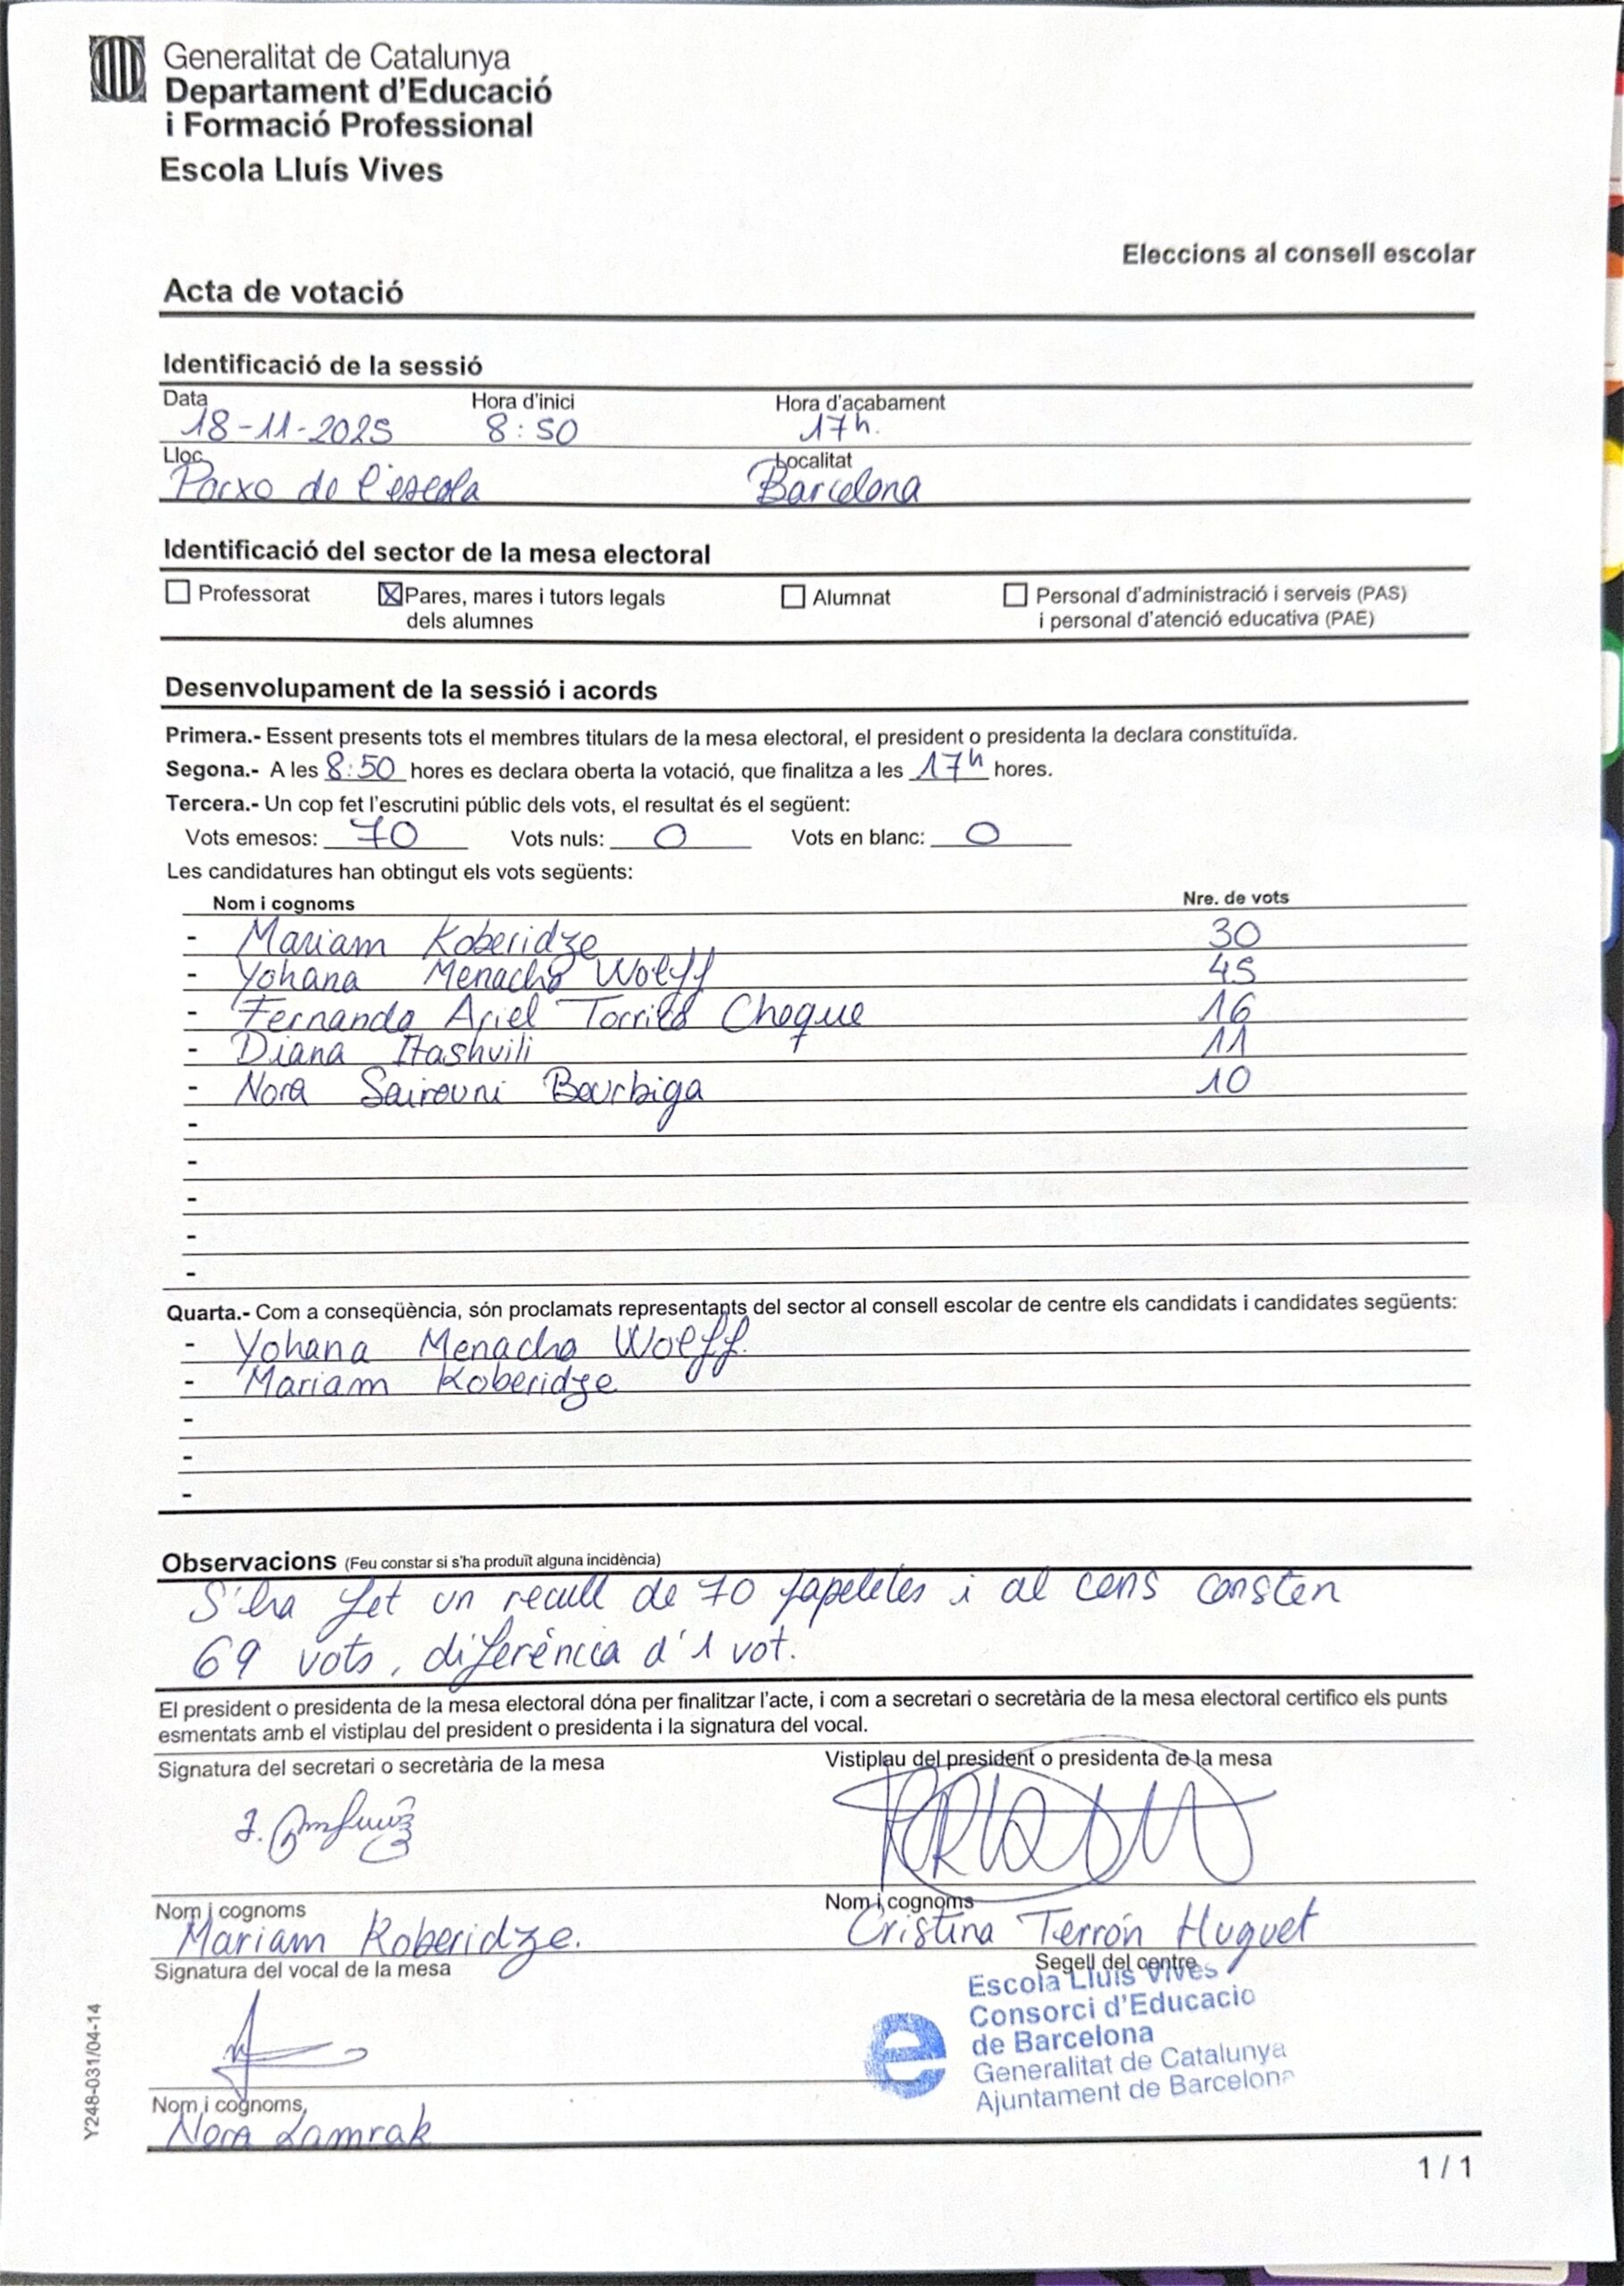 Generalitat de Catalunya
Departament d'Educació
i Formació Professional
Escola Lluís Vives
Eleccions al consell escolar
Acta de votació
Identificació de la sessió
Data Hora d'inici Hora d'acabament
18-11-2025 8:50 17h.
Lloc Localitat
Porxo de l'escola Barcelona
Identificació del sector de la mesa electoral
Professorat Pares, mares i tutors legals Alumnat Personal d'administració i serveis (PAS)
dels alumnes i personal d'atenció educativa (PAE)
Desenvolupament de la sessió i acords
Primera.- Essent presents tots el membres titulars de la mesa electoral, el president o presidenta la declara constituïda.
Segona.- A les 8:50 hores es declara oberta la votació, que finalitza a les 17h hores.
Tercera.- Un cop fet l'escrutini públic dels vots, el resultat és el següent:
Vots emesos: 70 Vots nuls: 0 Vots en blanc: 0
Les candidatures han obtingut els vots següents:
Nom i cognoms Nre. de vots
- Mariam Koberidze 30
- Yohana Menacho Wolff 45
- Fernando Ariel Torrico Choque 16
- Diana Itashvili 11
- Nora Sairouni Bourbiga 10
-
-
-
-
-
Quarta.- Com a conseqüència, són proclamats representants del sector al consell escolar de centre els candidats i candidates següents:
- Yohana Menacho Wolff.
- Mariam Koberidze
-
-
-
Observacions (Feu constar si s'ha produït alguna incidència)
S'ha fet un recull de 70 papeletes i al cens consten
69 vots, diferència d'1 vot.
El president o presidenta de la mesa electoral dóna per finalitzar l'acte, i com a secretari o secretària de la mesa electoral certifico els punts
esmentats amb el vistiplau del president o presidenta i la signatura del vocal.
Signatura del secretari o secretària de la mesa Vistiplau del president o presidenta de la mesa
Nom i cognoms Nom i cognoms
Mariam Koberidze. Cristina Terrón Huguet
Signatura del vocal de la mesa Segell del centre
Escola Lluís Vives
Consorci d'Educació
de Barcelona
Generalitat de Catalunya
Ajuntament de Barcelona
Nom i cognoms
Nora Lamrak
Y248-031/04-14
1 / 1